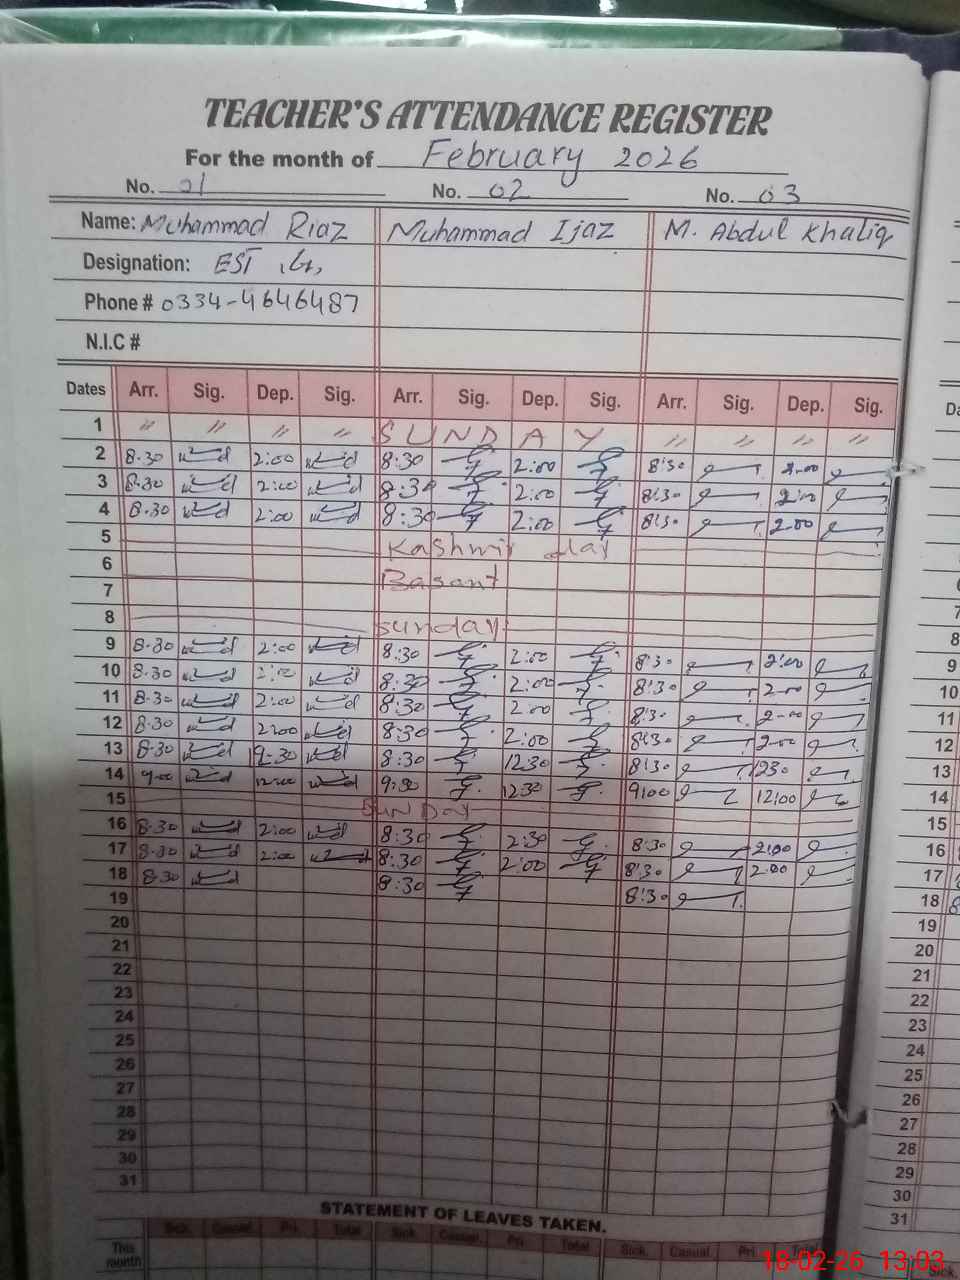 TEACHER'S ATTENDANCE REGISTER
For the month of February 2026
No. 01 No. 02 No. 03
Name: Muhammad Riaz Muhammad Ijaz M. Abdul Khaliq
Designation: EST
Phone # 0334-4646487
N.I.C #
Dates Arr. Sig. Dep. Sig. Arr. Sig. Dep. Sig. Arr. Sig. Dep. Sig.
1 " " " " SUNDAY " " " "
2 8.30 2:00 8:30 2:00 8:30 2:00
3 8.30 2:00 8:30 2:00 8:30 2:00
4 8.30 2:00 8:30 2:00 8:30 2:00
5 Kashmir day
6 Basant
7
8 Sunday
9 8.30 2:00 8:30 2:00 8:30 2:00
10 8.30 2:00 8:30 2:00 8:30 2:00
11 8.30 2:00 8:30 2:00 8:30 2:00
12 8.30 2:00 8:30 2:00 8:30 2:00
13 8.30 8:30 1230 8:30 1230
14 9.00 12:00 9:30 1230 9:00 12:00
15 SUNDay
16 8.30 2:00 8:30 2:30 8:30 2:00
17 8.30 2:00 8:30 2:00 8:30 2:00
18 8.30 8:30
19
20
21
22
23
24
25
26
27
28
29
30
31
STATEMENT OF LEAVES TAKEN.
Sick. Casual. Pri. Total Sick. Casual. Pri. Total Sick. Casual. Pri. Total
This month
9
10
11
12
13
14
15
16
17
18
19
20
21
22
23
24
25
26
27
28
29
30
31
18-02-26 13:03